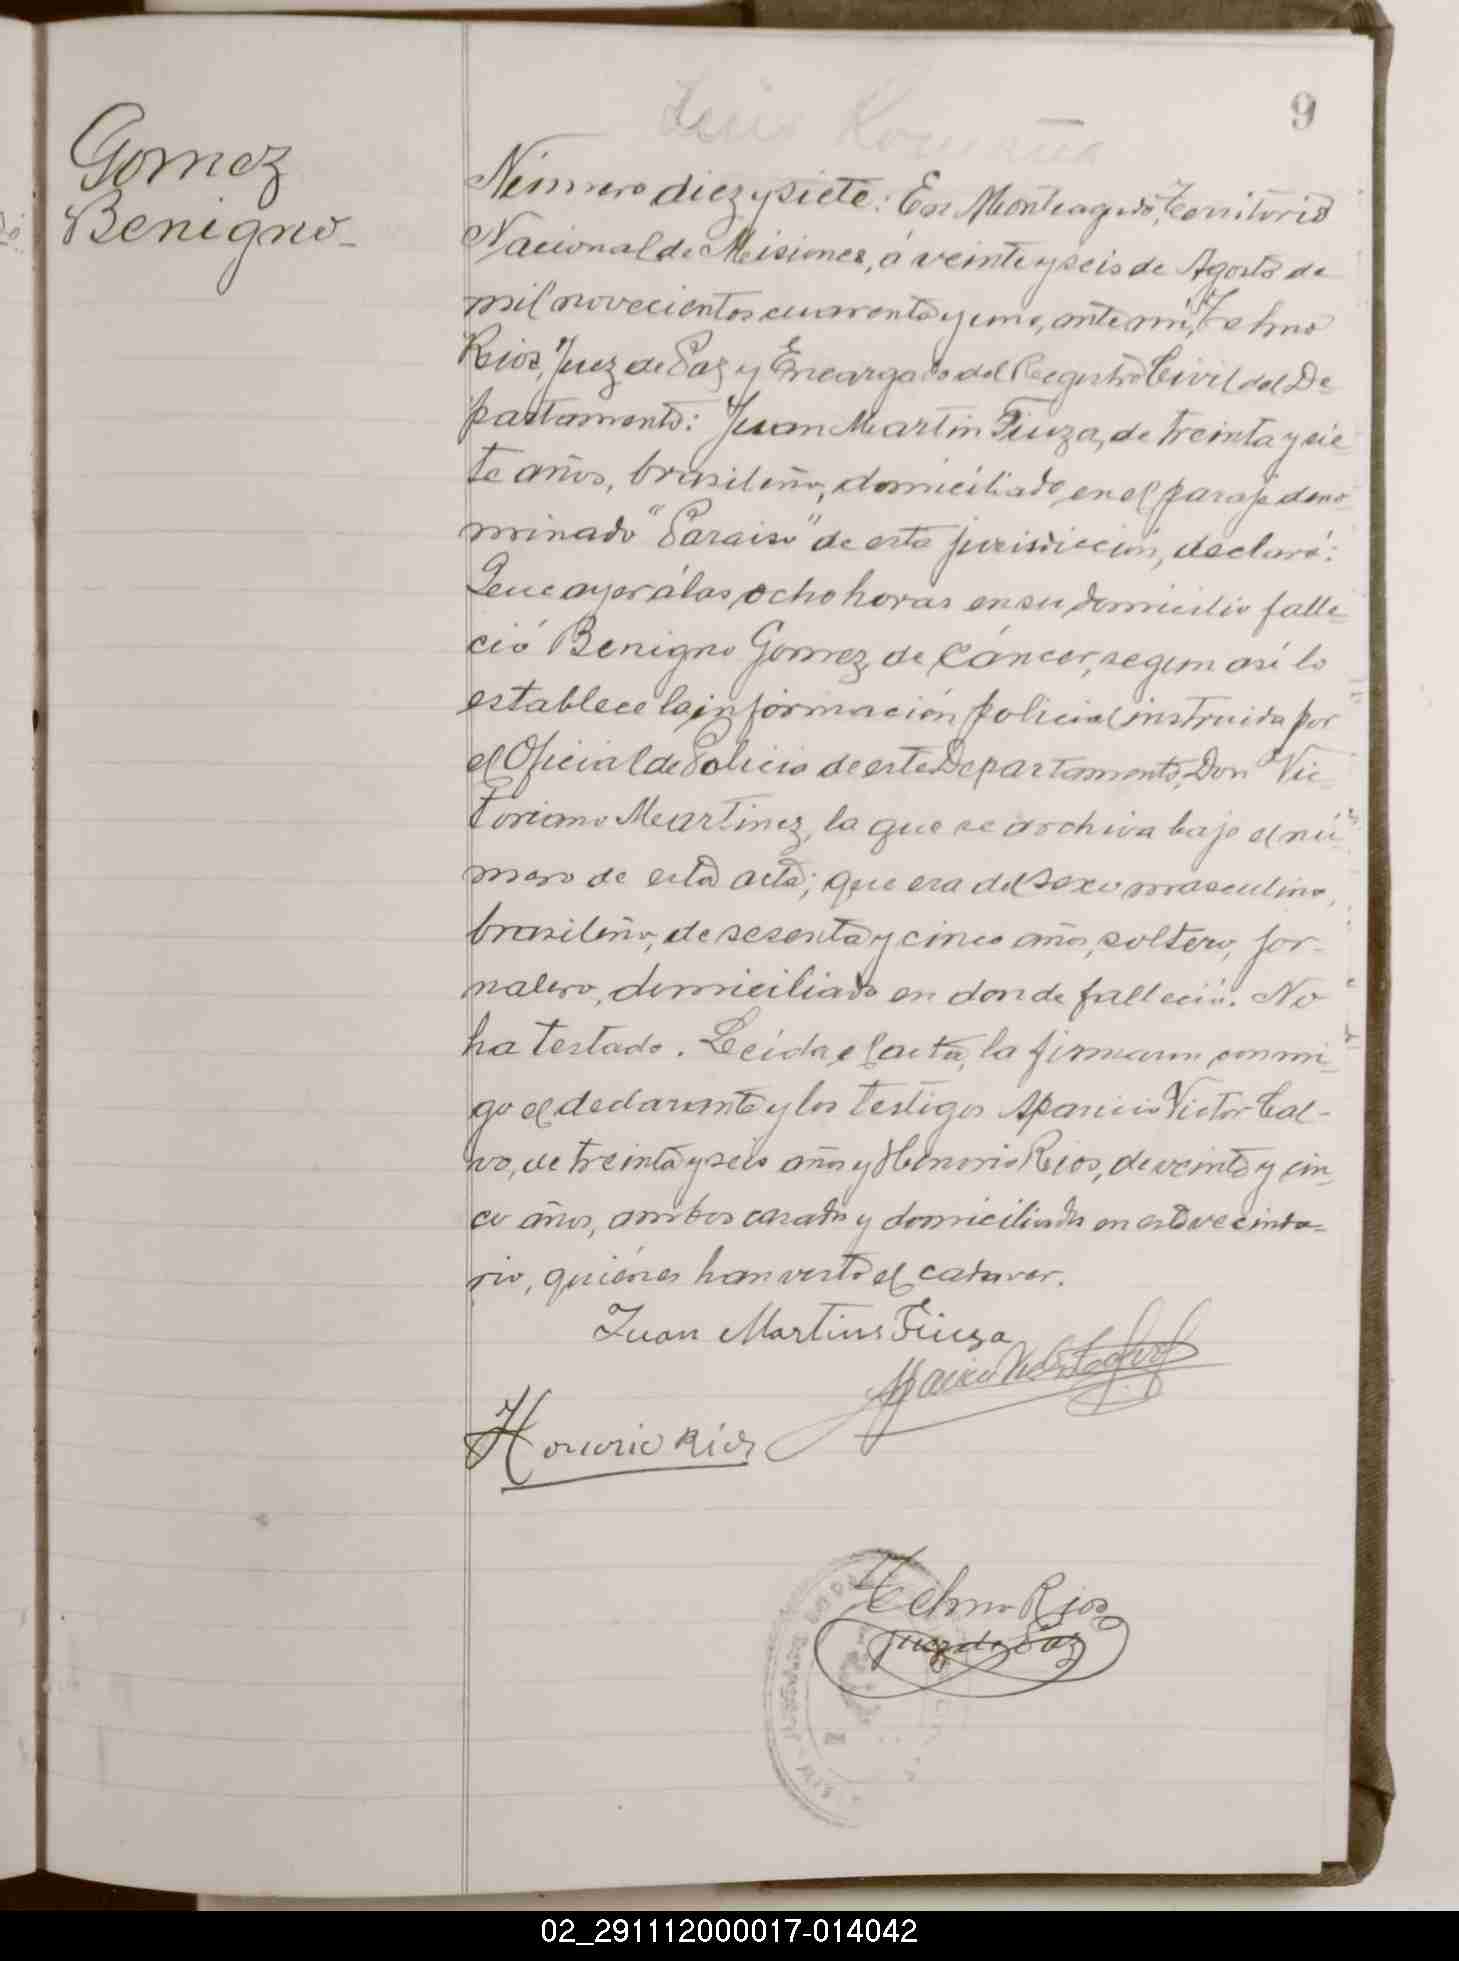 9
Gomez
Benigno-
Número diez y siete: En Monteagudo, Territorio
Nacional de Misiones, á veinte y seis de Agosto de
mil novecientos cuarenta y uno, ante mí, Telmo
Rios, Juez de Paz y Encargado del Registro Civil del De-
partamento: Juan Martin Fiuza, de treinta y sie-
te años, brasileño, domiciliado en el paraje deno-
minado "Paraiso" de esta jurisdicción, declaró:
Que ayer á las ocho horas en su domicilio falle-
ció Benigno Gomez, de cáncer, segun así lo
establece la información policial instruida por
el Oficial de Policia de este Departamento, Don Vic-
toriano Martinez, la que se archiva bajo el nú-
mero de esta acta; que era del sexo masculino,
brasileño, de sesenta y cinco años, soltero, jor-
nalero, domiciliado en donde falleció. No
ha testado. Leída el acta, la firmaron conmi-
go el declarante y los testigos Aparicio Victor Cal-
vo, de treinta y seis años y Honorio Rios, de veinte y cin-
co años, ambos casados y domiciliados en este vecinda-
rio, quiénes han visto el cadaver.
Juan Martins Fiuza
Honorio Rios
Telmo Rios
Juez de Paz
02_291112000017-014042